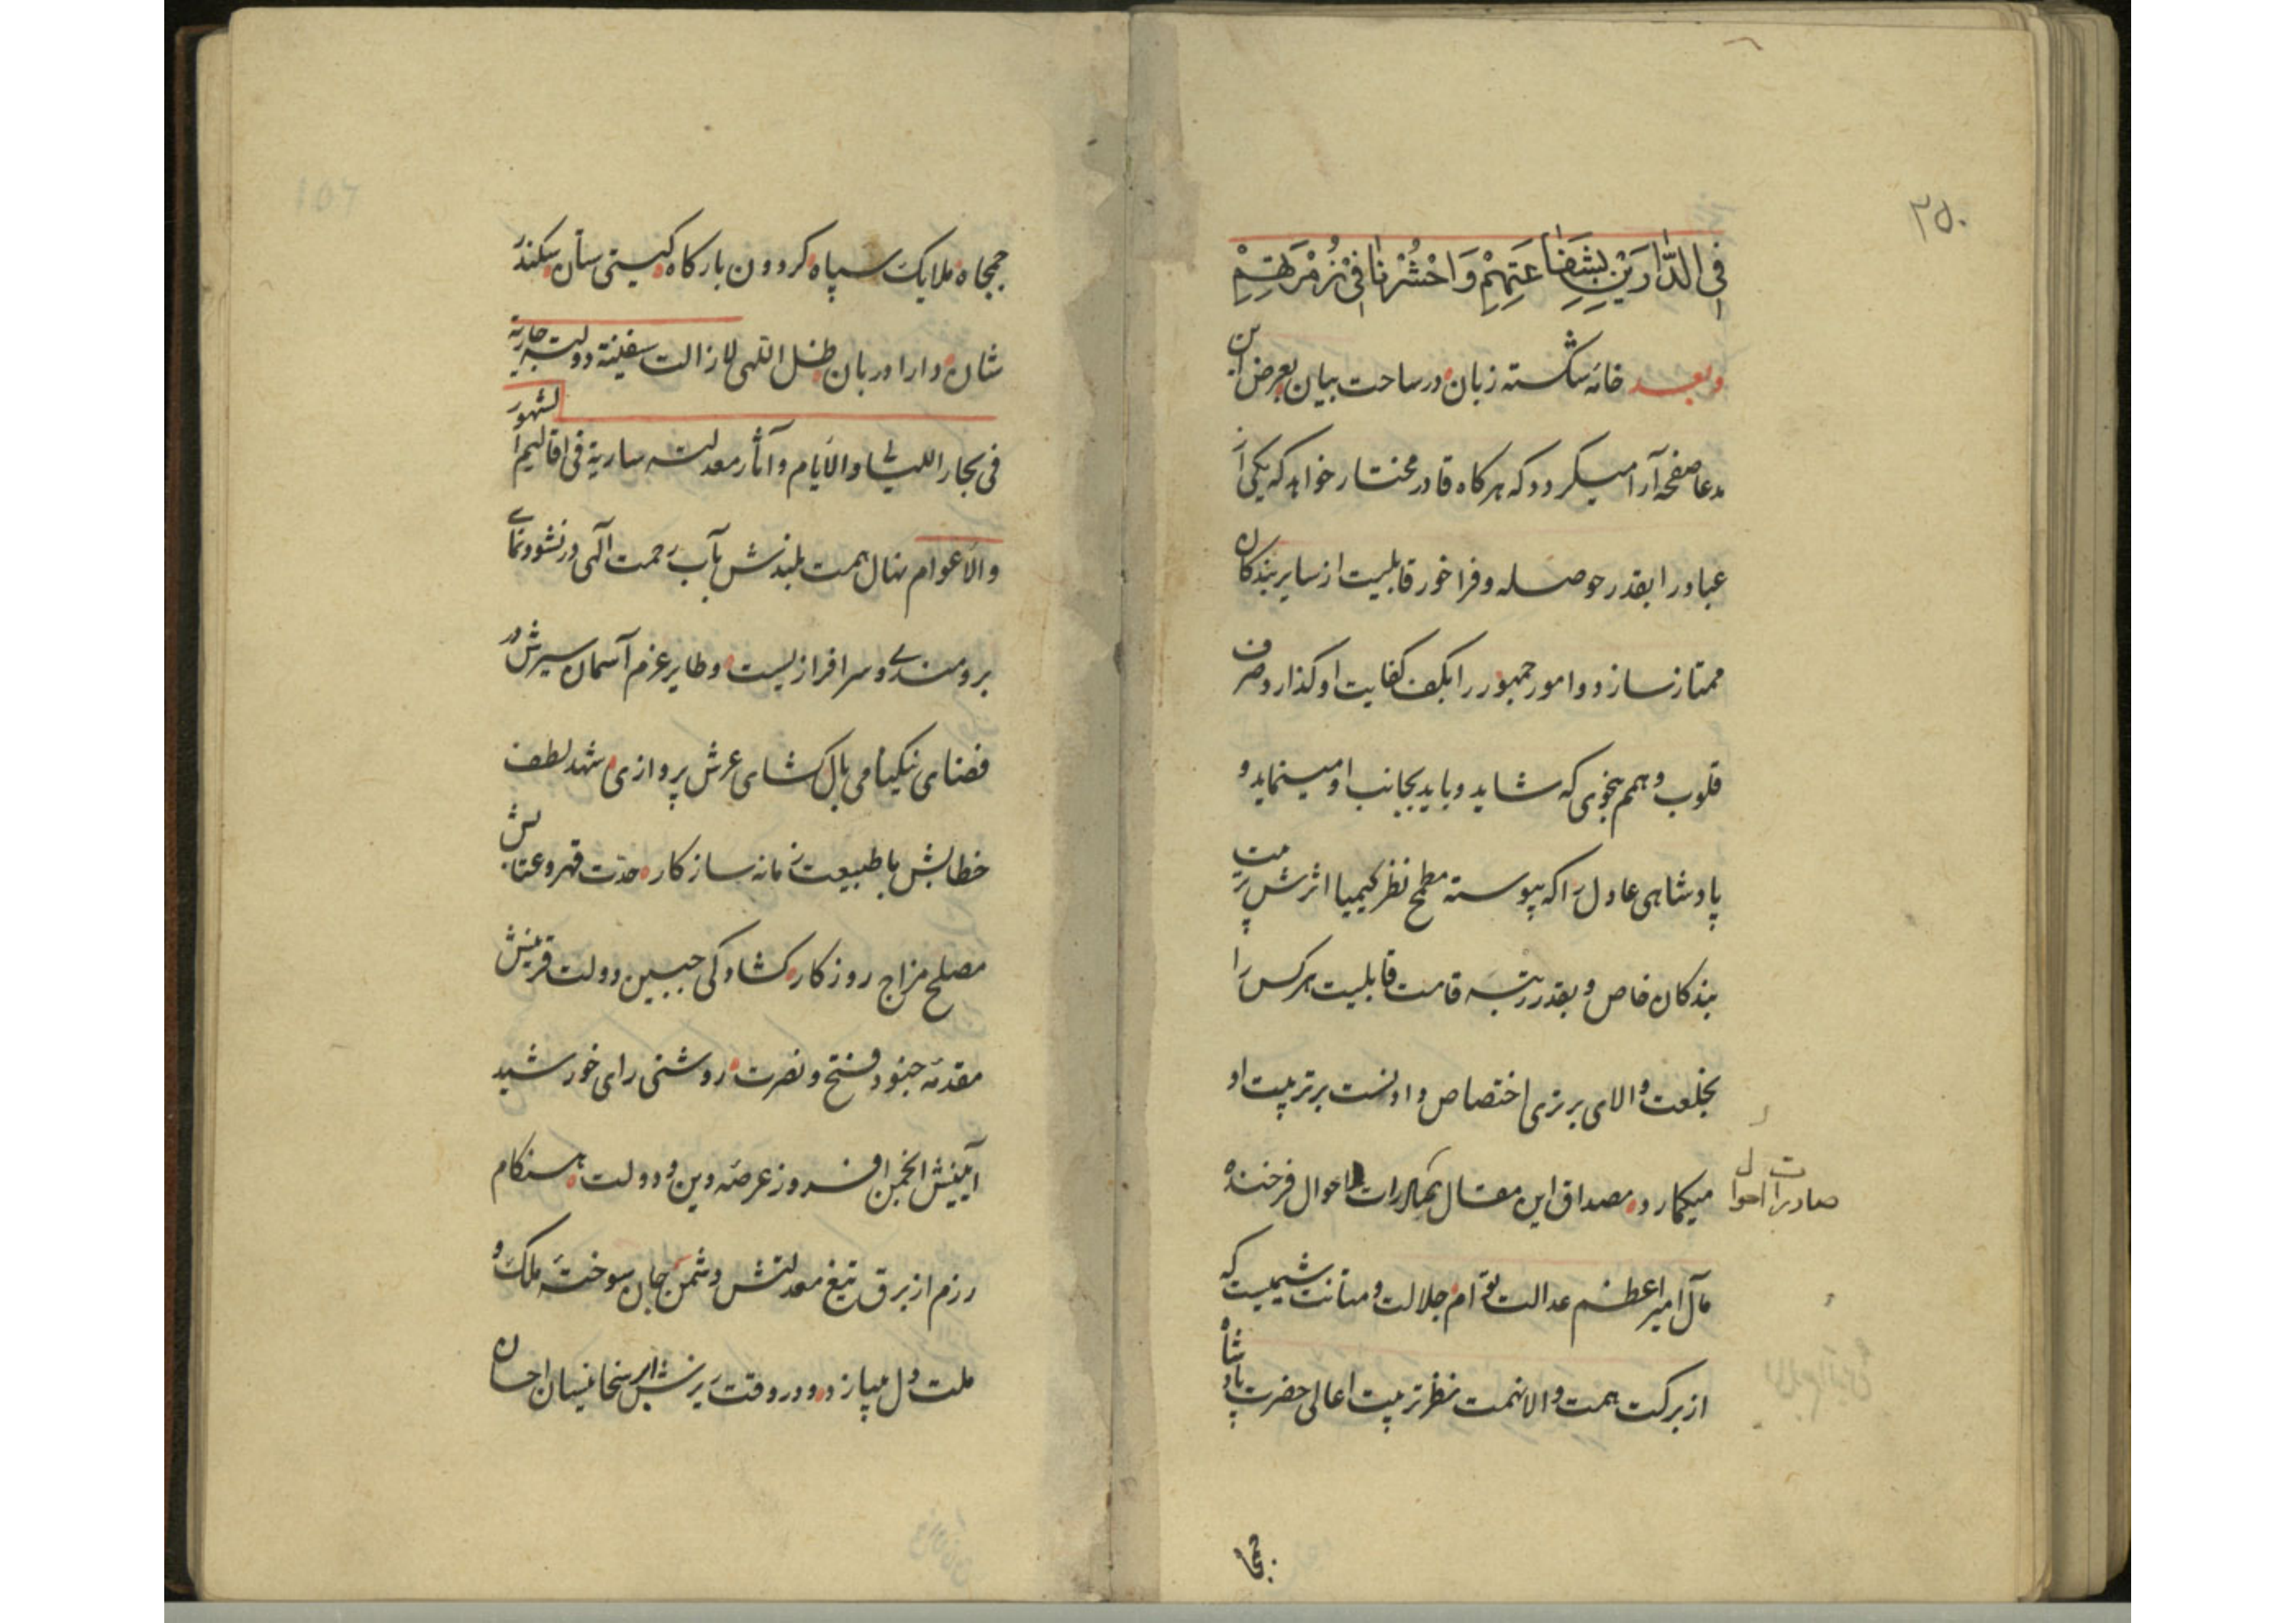 ۲۵۰
فِی الدَّارَیْنِ بِشَفَاعَتِهِمْ وَاحْشُرْنَا فِیْ زُمْرَتِهِمْ
وبعد خامهٔ شکسته زبان در ساحت بیان بعرض این
مدعا صفحه آرا میکردد که هرکاه قادر مختار خواهد که یکی از
عباد را بقدر حوصله و فراخور قابلیت از سایر بندکان
ممتاز سازد و امور جمهور را بکف کفایت او کذارد صرف
قلوب و همم بنحوی که شاید و باید بجانب او مینماید و
پادشاهی عادل را که پیوسته مطمح نظر کیمیا اثرش تربیت
بندکان خاص و بقدر رتبه قامت قابلیت هرکس را
بخلعت والای برتری اختصاص دادنست بر تربیت او
میکمارد مصداق این مقال احوال فرخنده
صادرات احوال
مآل امیر اعظم عدالت توأم جلالت و متانت شیمیست که
از برکت همت والا نهمت نظر تربیت اعالی حضرت پادشاه
جمجا
107
جمجاه ملایک سپاه کردون بارکاه کیتی ستان سکندر
شان دارا دربان ظل اللهی لازالت سفینة دولته جاریة
فی بحار اللیالی و الایام و آثار معدلته ساریة فی اقالیم الشهور
والاعوام نهال همت بلندش بآب رحمت آلهی در نشو و نمای
برومندی و سرافرازیست و طایر عزم آسمان سیرش در
فضای نیکنامی بال کشای عرش پروازی شهد لطف
خطابش با طبیعت زمانه سازکار حدّت قهر و عتابش
مصلح مزاج روزکار کشادکی جبین دولت قرینش
مقدمهٔ جنود فتح و نصرت روشنی رای خورشید
آیینش انجمن افروز عرصهٔ دین و دولت هنکام
رزم از برق تیغ معدلتش دشمن جان سوختهٔ ملک و
ملت دل میبازد و در وقت ریزش ابر سخا نیسان احسان